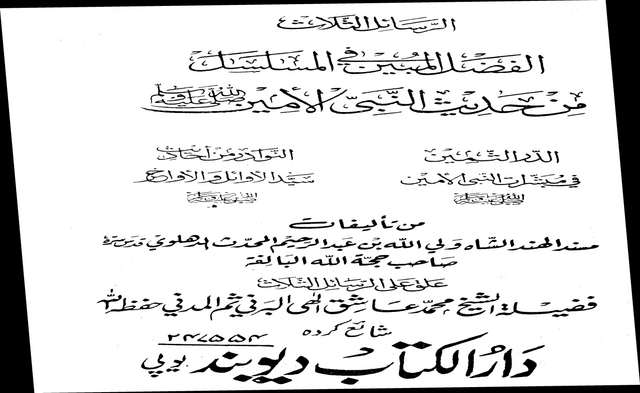 الرسائل الثلاث
الفضل المبين في المسلسل
من حديث النبي الأمين صلى الله عليه وسلم
الدر الثمين
في مبشرات النبي الأمين
صلى الله عليه وسلم
النوادر من أحاديث
سيد الأوائل والأواخر
صلى الله عليه وسلم
من تأليفات
مسند الهند الشاه ولي الله بن عبد الرحيم المحدث الدهلوي قدس سره
صاحب حجة الله البالغة
علق على الرسائل الثلاث
فضيلة الشيخ محمد عاشق الهى البرني ثم المدني حفظه الله
شائع كرده
دار الكتاب ديوبند يوپي ۲۴۷۵۵۴